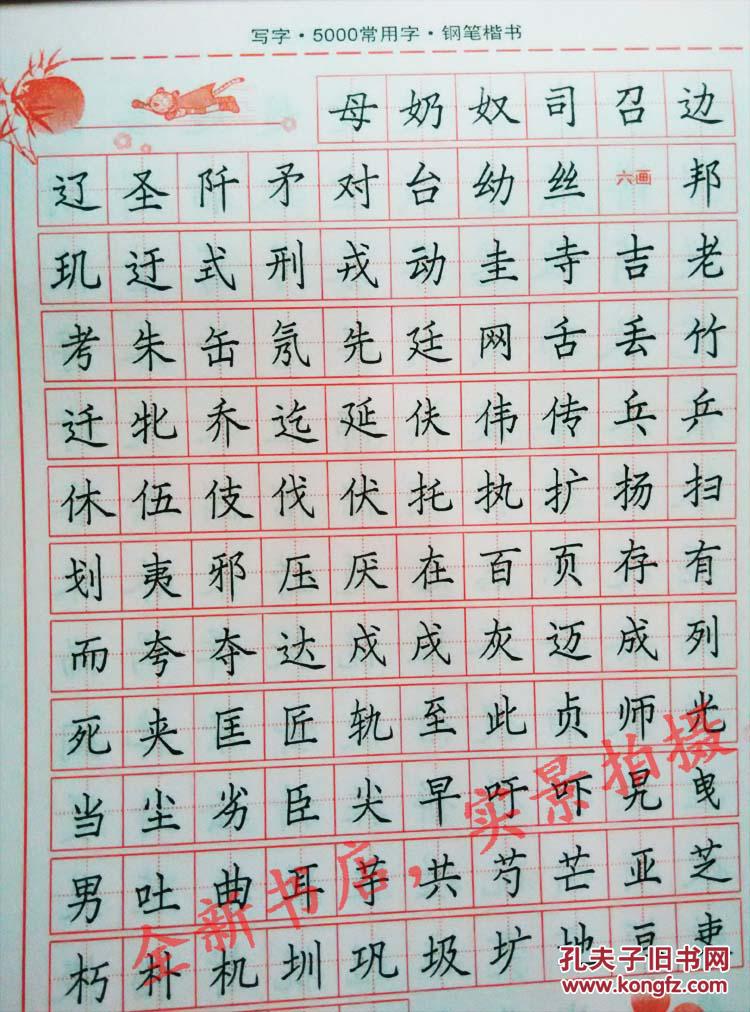 写字·5000常用字·钢笔楷书
母奶奴司召边
辽圣阡矛对台幼丝六画邦
玑迂式刑戎动圭寺吉老
考朱缶氖先廷网舌丢竹
迁牝乔迄延伕伟传乓乒
休伍伎伐伏托执扩扬扫
划夷邪压厌在百页存有
而夸夺达戍戌灰迈成列
死夹匡匠轨至此贞师光
当尘劣臣尖早吁吓晃曳
男吐曲耳芋共芍芒亚芝
朽朴机圳巩圾圹地吏
全新书店，实景拍摄
孔夫子旧书网
www.kongfz.com